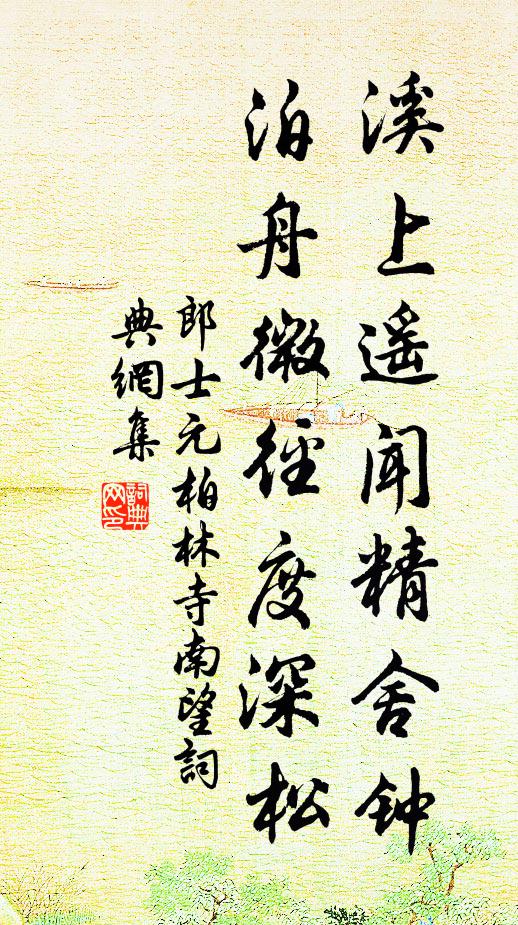 溪上遥闻精舍钟
泊舟微径度深松
郎士元柏林寺南望詞
典網集
詞典网印